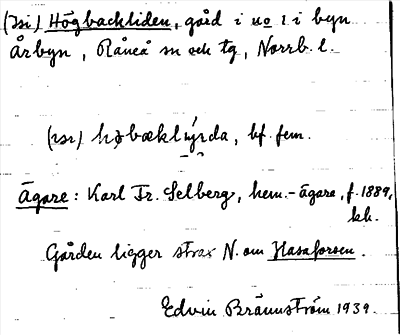 (isi) Högbackliden, gård i no 1 i byn
Årbyn, Råneå sn och tg, Norrb. l.
bf. fem.
Ägare: Karl Fr. Selberg, hem.-ägare, f. 1889,
Gården ligger strax N. om Hasaforsen.
Edvin Brännström 1939.